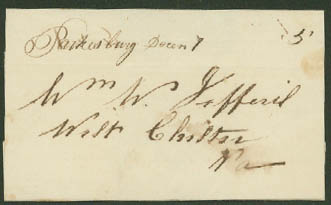 Parkesburg Decem 7 5
Wm W. Jefferil
West Chester
Pa